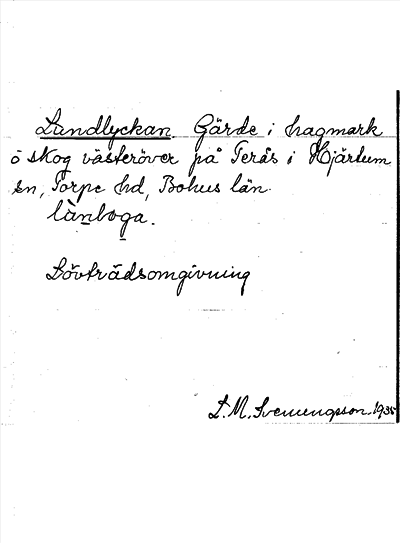 Lundlyckan. Gärde i hagmark
o skog västeröver på Terås i Hjärtum
sn, Torpe hd, Bohus län.
lànboga.
Lövträdsomgivning
L. M. Svenungsson. 1935